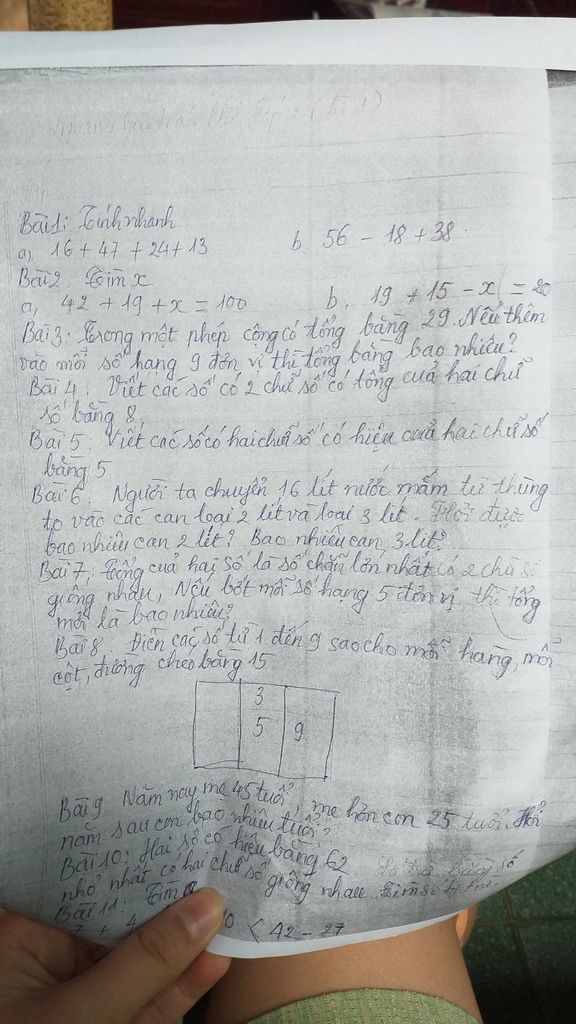 Bài 1: Tính nhanh
a), 16 + 47 + 24 + 13 b. 56 - 18 + 38.
Bài 2. Tìm x
a, 42 + 19 + x = 100 b. 19 + 15 - x = 20
Bài 3: Trong một phép cộng có tổng bằng 29. Nếu thêm
vào mỗi số hạng 9 đơn vị thì tổng bằng bao nhiêu?
Bài 4: Viết các số có 2 chữ số có tổng cuả hai chữ
số bằng 8.
Bài 5: Viết các số có hai chữ số có hiệu cuả hai chữ số
bằng 5
Bài 6. Người ta chuyển 16 lít nước mắm từ thùng
to vào các can loại 2 lít và loại 3 lít. Hỏi được
bao nhiêu can 2 lít? Bao nhiêu can 3 lít?
Bài 7, Tổng cuả hai số là số chẵn lớn nhất có 2 chữ số
giống nhau, Nếu bớt mỗi số hạng 5 đơn vị thì tổng
mới là bao nhiêu?
Bài 8 Điền các số từ 1 đến 9 sao cho mỗi hàng, mỗi
cột, đường chéo bằng 15
3
5 9
Bài 9 Năm nay mẹ 45 tuổi, mẹ hơn con 25 tuổi. Hỏi
năm sau con bao nhiêu tuổi?
Bài 10: Hai số có hiệu bằng 62 Số bé bằng số
nhỏ nhất có hai chữ số giống nhau. Tìm số bị trừ
Bài 11: Tìm
7 + 4 0 < 42 - 27